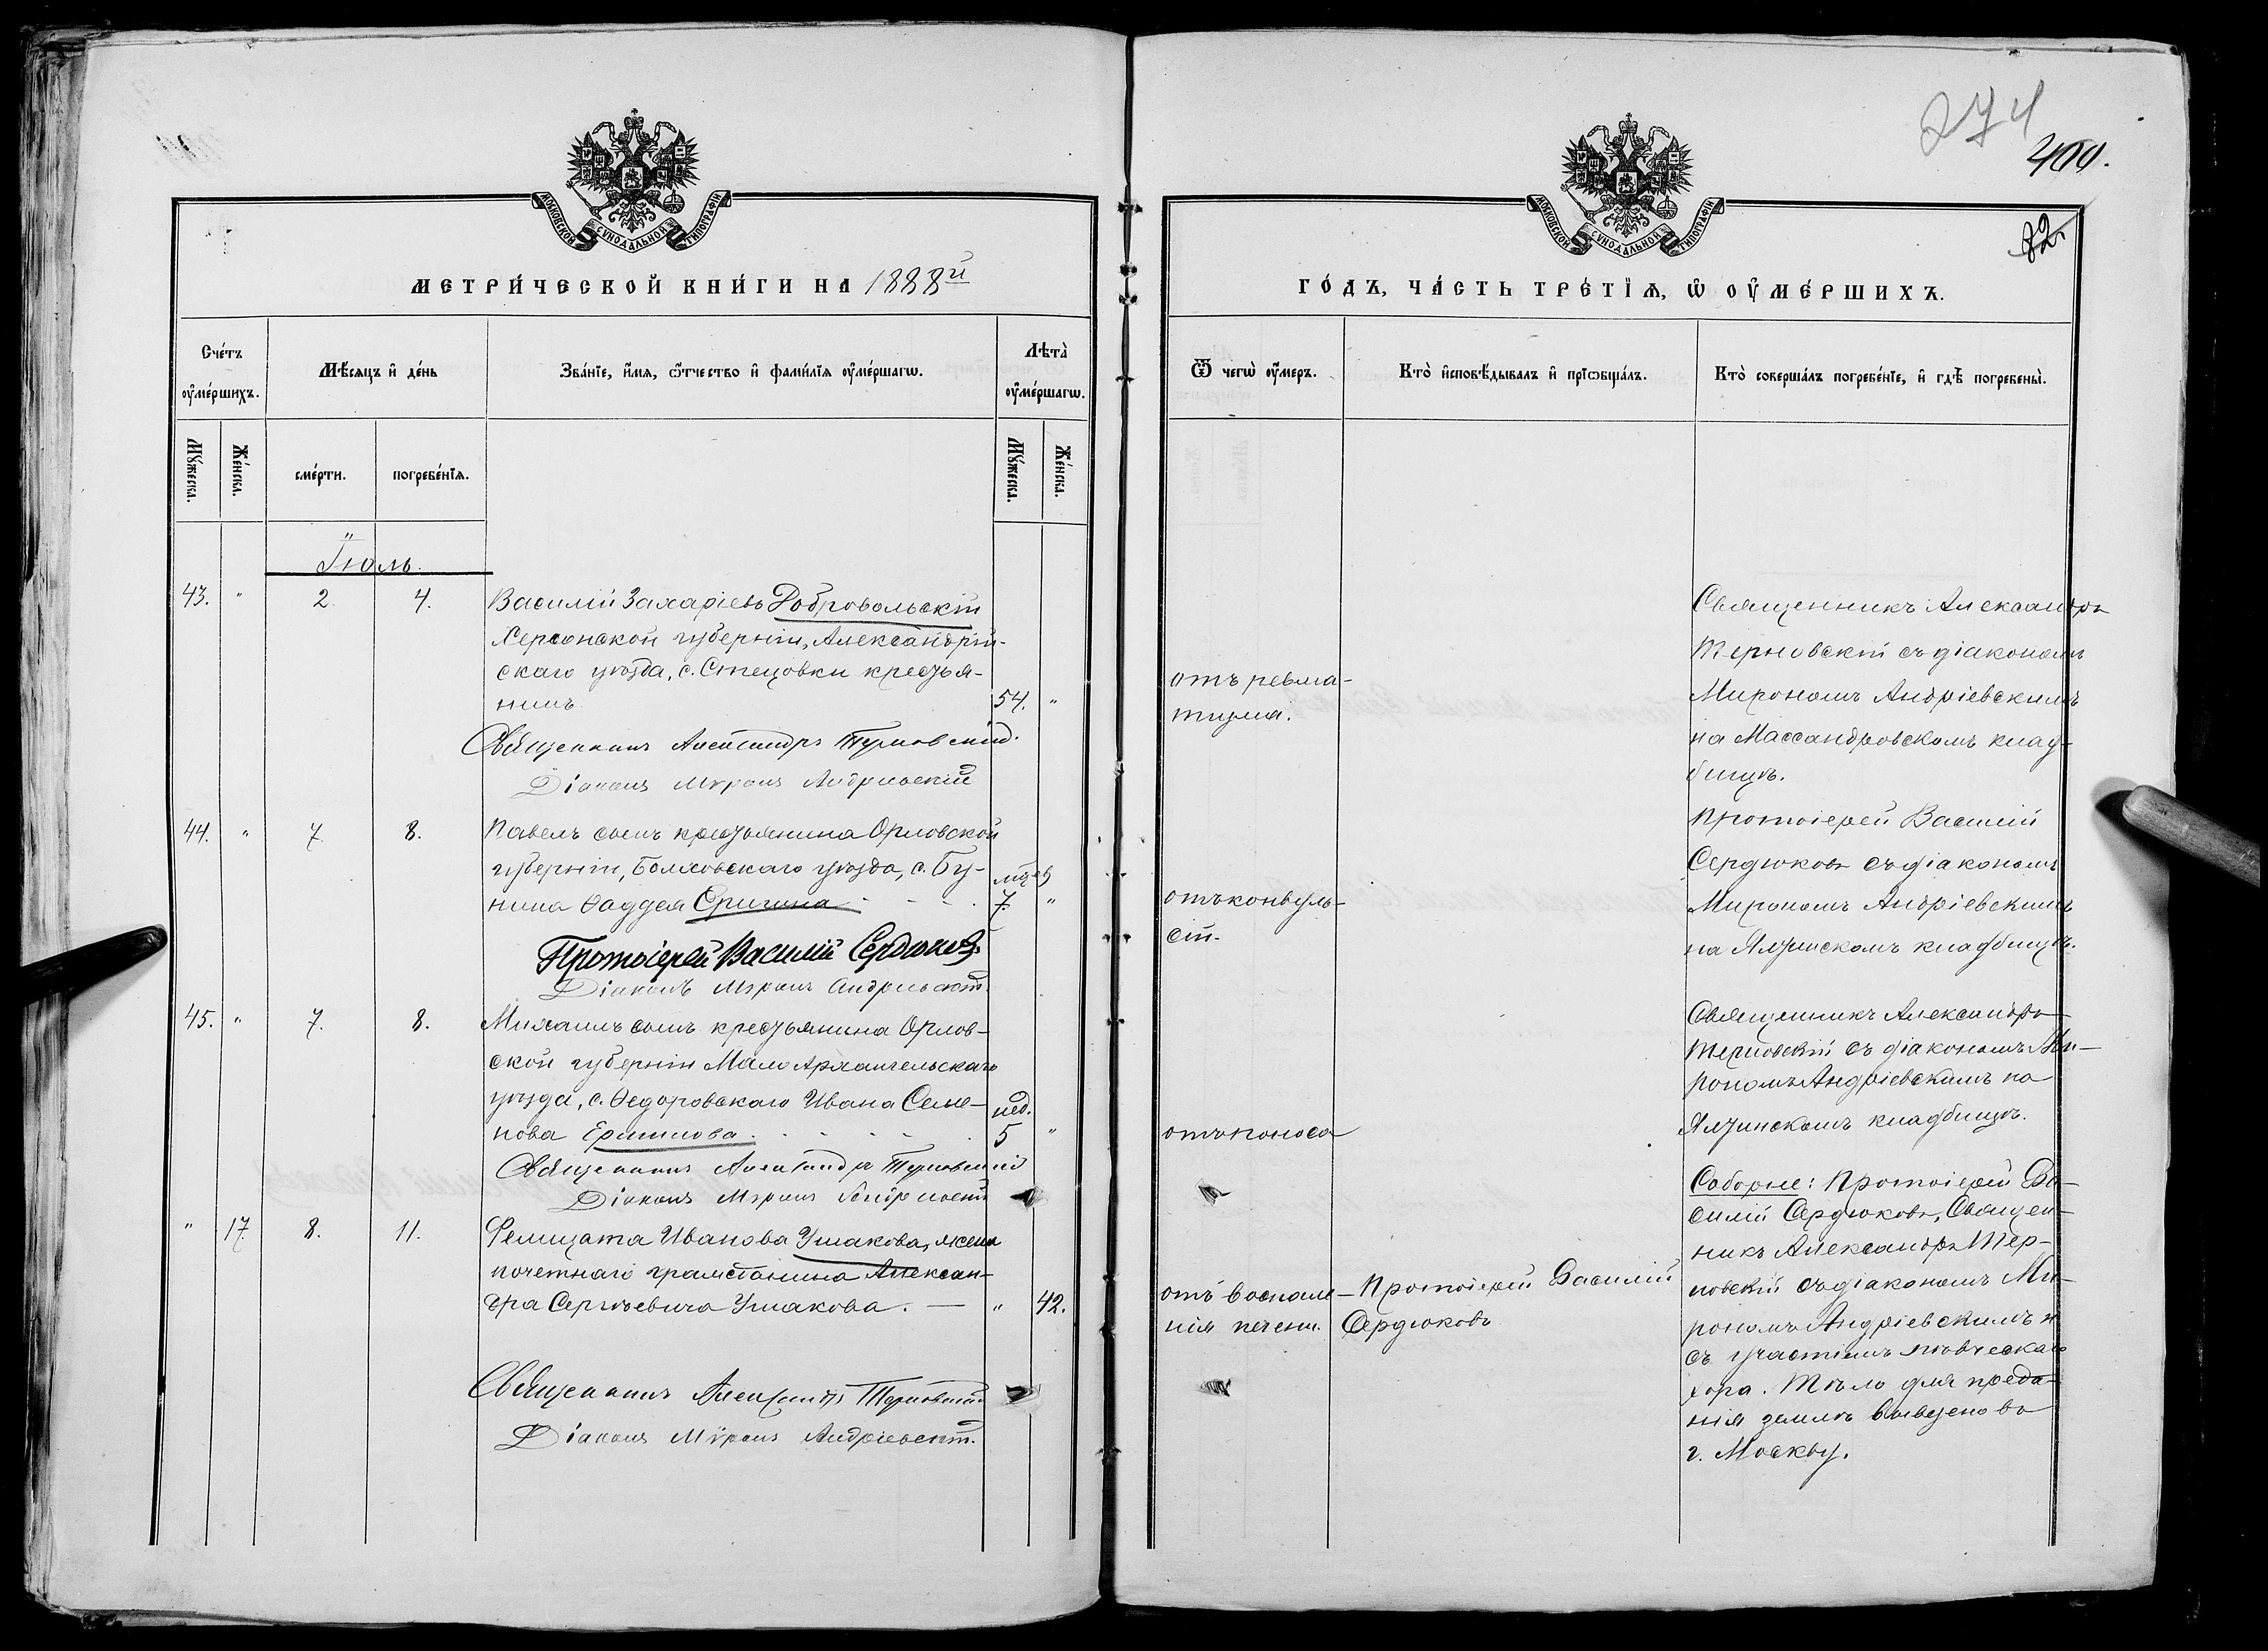 274
400.
82.
МОСКОВСКОЙ СУНОДАЛЬНОЙ ТИПОГРАФІИ
МЕТРИ́ЧЕСКОЙ КНИ́ГИ НА 1888й
Сче́тъ
ᲂу҆ме́ршихъ.
Мѣ́сяцъ и҆ де́нь
Зва́нїе, и҆́мя, ѻ҆́тчество и҆ фами́лїя ᲂу҆ме́ршагѡ.
Лѣта̀
ᲂу҆ме́ршагѡ.
Мꙋ́жеска.
Же́нска.
сме́рти.
погребе́нїѧ.
Мꙋ́жеска.
Же́нска.
Іюль.
43. " 2. 4. Василій Захаріевъ Добровольскій
Херсонской губерніи, Александрій-
скаго уѣзда, с. Стецовки крестья-
нинъ 54. "
Священникъ Александръ Терновскій.
Діаконъ Миронъ Андріевскій
44. " 7. 8. Павелъ сынъ крестьянина Орловской
губерніи, Болховскаго уѣзда, с. Бу-
нина Ѳаддея мцев 7. "
Протоіерей Василій Сердюковъ.
Діаконъ Миронъ Андріевскій.
45. " 7. 8. Михаилъ сынъ крестьянина Орлов-
ской губерніи Мало Архангельскаго
уѣзда, с. Ѳедоровскаго Ивана Семе- нед.
нова 5 "
Священникъ Александръ Терновскій
Діаконъ Миронъ Андріевскій
" 17. 8. 11. Фелицата Иванова Ушакова, жена
почетнаго гражданина Алексан-
дра Сергѣевича Ушакова. — " 42.
Священникъ Александръ Терновскій
Діаконъ Мѵронъ Андріевскій.
МОСКОВСКОЙ СУНОДАЛЬНОЙ ТИПОГРАФІИ
ГО́ДЪ, ЧА́СТЬ ТРЕ́ТЇѦ, Ѡ҆ ОУ҆МЕ́РШИХЪ.
Ѿ чегѡ̀ ᲂу҆́меръ.
Кто̀ и҆сповѣ́дывалъ и҆ прїѡбща́лъ.
Кто̀ соверша́лъ погребе́нїе, и҆ гдѣ̀ погребены̀.
отъ ревма-
тизма.
Священникъ Александръ
Терновскій съ діакономъ
Мирономъ Андріевскимъ
на Массандровскомъ клад-
бищѣ.
отъ конвуль-
сій.
Протоіерей Василій
Сердюковъ съ діакономъ
Мирономъ Андріевскимъ
на Ялтинскомъ кладбищѣ.
отъ поноса
Священникъ Александръ
Терновскій съ діакономъ Ми-
рономъ Андріевскимъ на
Ялтинскомъ кладбищѣ.
отъ воспале-
нія печени.
Протоіерей Василій
Сердюковъ
Соборне: Протоіерей Ва-
силій Сердюковъ, Священ-
никъ Александръ Тер-
новскій съ діакономъ Ми-
рономъ Андріевскимъ и
съ участіемъ пѣвческаго
хора. Тѣло для преда-
нія землѣ вывезено въ
г. Москву.